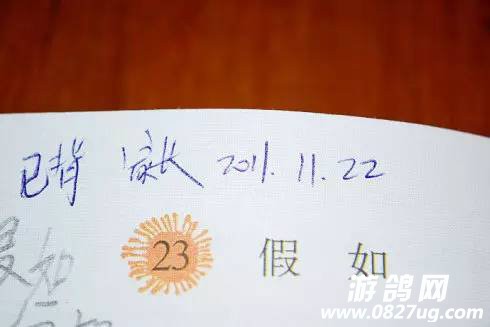 已背 家长 2011.11.22
23 假如
游鸽网
www.0827ug.com